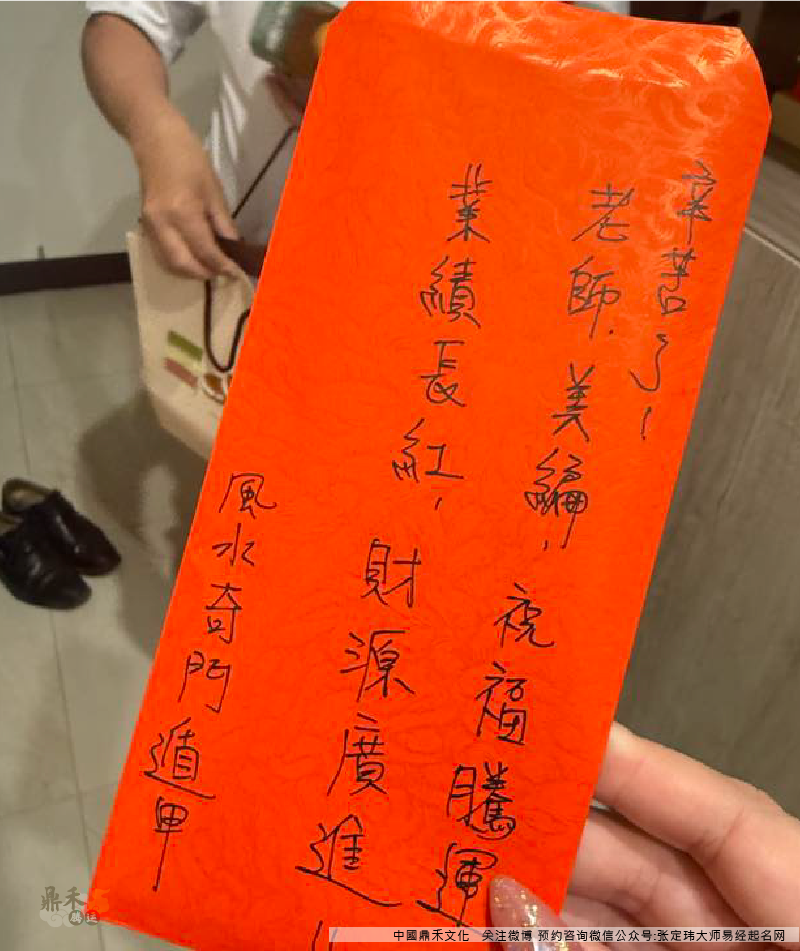 辛苦了！
老師、美編，祝福騰運
業績長紅，財源廣進！！
風水奇門遁甲
鼎禾
騰运
中國鼎禾文化 关注微博 预约咨询微信公众号:张定玮大师易经起名网